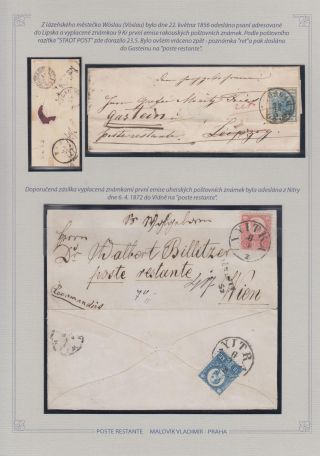 Z lázeňského městečka Wöslau (Vöslau) bylo dne 22. květnar 1856 odesláno psaní adresované
do Lipska a vyplacené známkou 9 Kr první emise rakouských poštovních známek. Podle poštovního
razítka "STADT POST" zde dorazilo 23.5. Bylo ovšem vráceno zpět - poznámka "ret" a pak dosláno
do Gasteinu na "poste restante".
Herrn Grafen Moritz Fries
Gastein
poste restante
Leipzig
Doporučená zásilka vyplacená známkami první emise uherských poštovních známek byla odeslána z Nitry
dne 6. 4. 1872 do Vídně na "poste restante".
Sr Wohlgeborn
Herrn
Dr Adalbert Billitzer
poste restante
Wien
Recommandirt
NITRA
NITRA
POSTE RESTANTE MALOVÍK VLADIMÍR - PRAHA